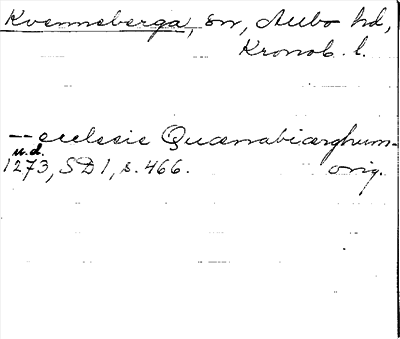 Kvenneberga, sn, Allbo hd,
Kronob. l.
-- ecclesie Quænabiærghum-
u.d.
1273, SD 1, s. 466. orig.